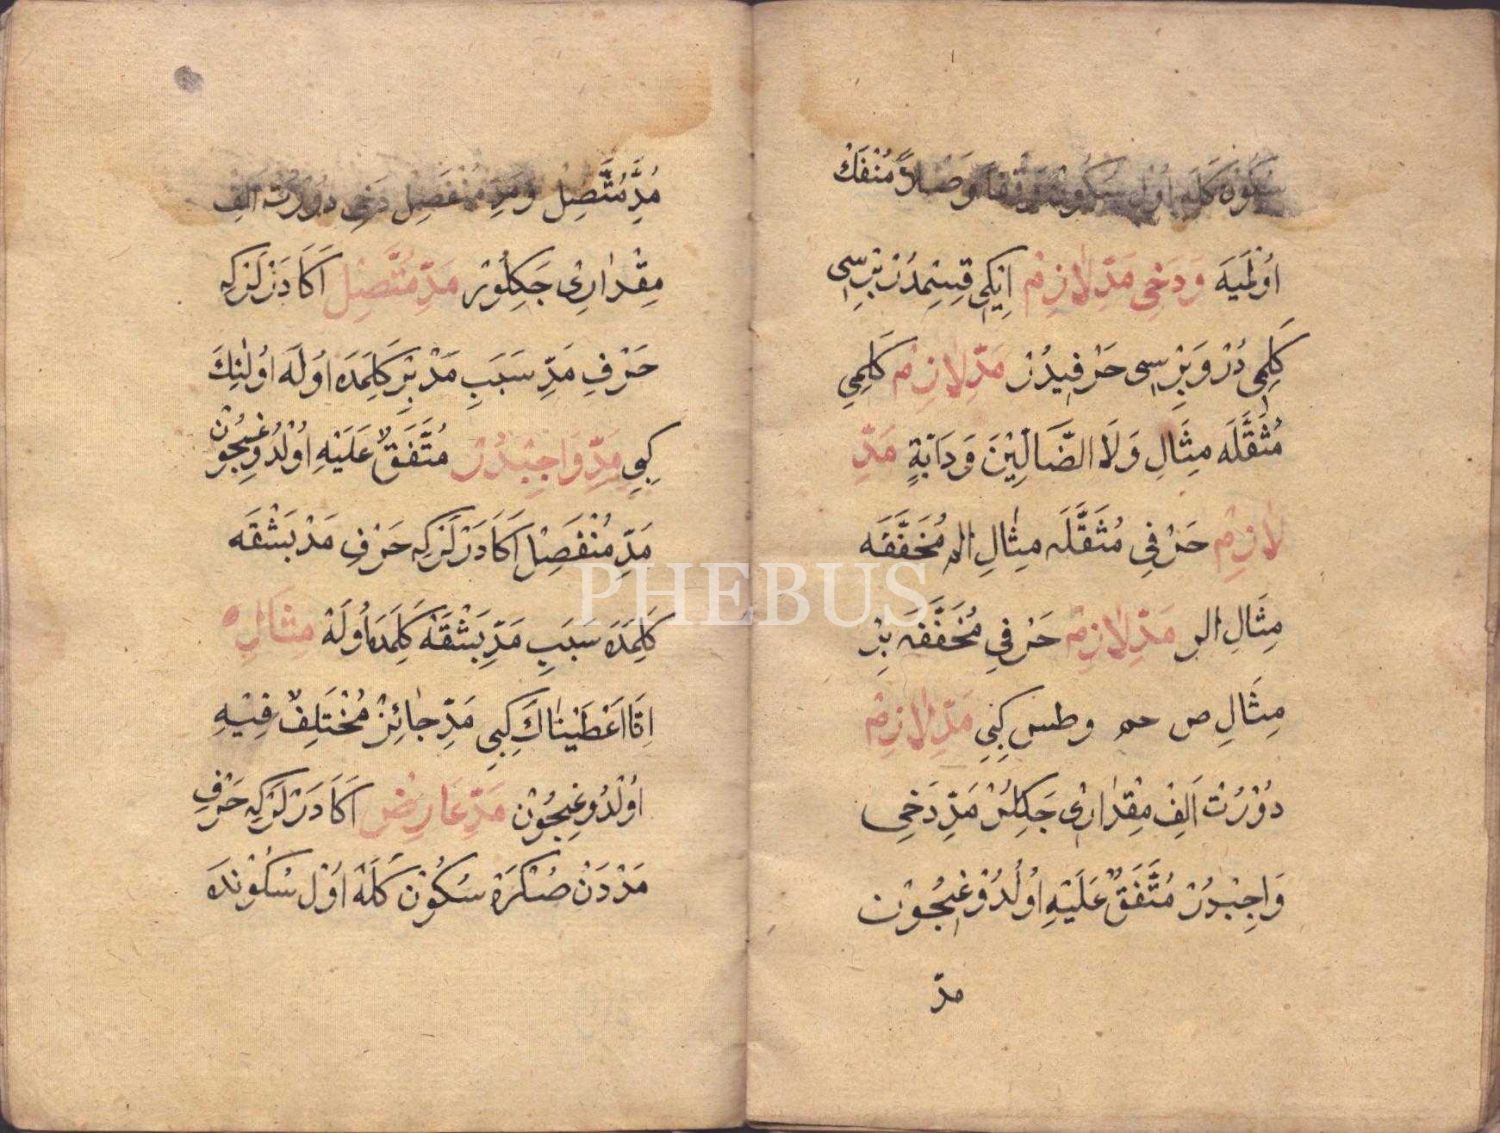 سكون كله اول سكون وقفا وَصْلاً مُنْفَكْ
اُوْلمَيَه وَدَخِى مَدِّ لَازِمْ اِيْكِى قِسِمْدُرْ بِرْسِى
كَلِمِى دُرْ وَبِرْسِى حَرْفِيدُرْ مَدِّ لَازِمْ كَلِمِي
مُثَقَّلَه مِثَالِ وَلَا الضَّالِّيْنَ وَدَابَّةٍ مَدِّ
لَازِمْ حَرْفِى مُثَقَّلَه مِثَالِ الم مُخَفَّفَه
مِثَالِ الر مَدِّ لَازِمْ حَرْفِي مُخَفَّفَه بِرْ
مِثَالِ ص حم وطس كِبِي مَدِّ لَازِمْ
دُوْرُتْ اَلِفْ مِقْدَارِى جَكِلُرْ مَدِّ دَخِى
وَاجِبْدُرْ مُتَّفَقٌ عَلَيْهِ اُولْدُوغِيجُوْن
مدّ
مَدِّ مُتَّصِلْ وَمَدِّ مُنْفَصِلْ دَخِى دُورْت اَلِفْ
مِقْدَارِى جَكِلُوْر مَدِّ مُتَّصِلْ اَكَا دَرْلَرْكِه
حَرْفِ مَدِّ سَبَبِ مَدْ بِرْ كَلِمَدَه اُولَه اُولٰئِكَ
كِبِي مَدِّ وَاجِبْدُرْ مُتَّفَقٌ عَلَيْهِ اُوْلدُوغِيجُوْن
مَدِّ مُنْفَصِلْ اَكَا دَرْلَرْكِه حَرْفِ مَدْ بَشْقَه
كَلِمَدَه سَبَبِ مَدِّ بَشْقَه كَلِمَدَه اُولَه مِثَالِ
اِنَّا اَعْطَيْنَاكَ كِبِى مَدِّ جَائِزْ مُخْتَلِفٌ فِيْهِ
اُوْلدُوغِيجُوْن مَدِّ عَارِضْ اَكَا دَرْلَرْكِه حَرْفِ
مَدْدَنْ صُكْرَه سُكُوْن كَلَه اُوْل سُكُوْندَه
PHEBUS